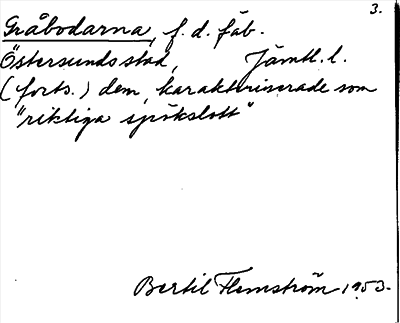 3.
Gråbodarna, f. d. fäb.
Östersunds stad, Jämtl. l.
(forts.) dem, karaktäriserade som
"riktiga spökslott"
Bertil Flemström 1953.